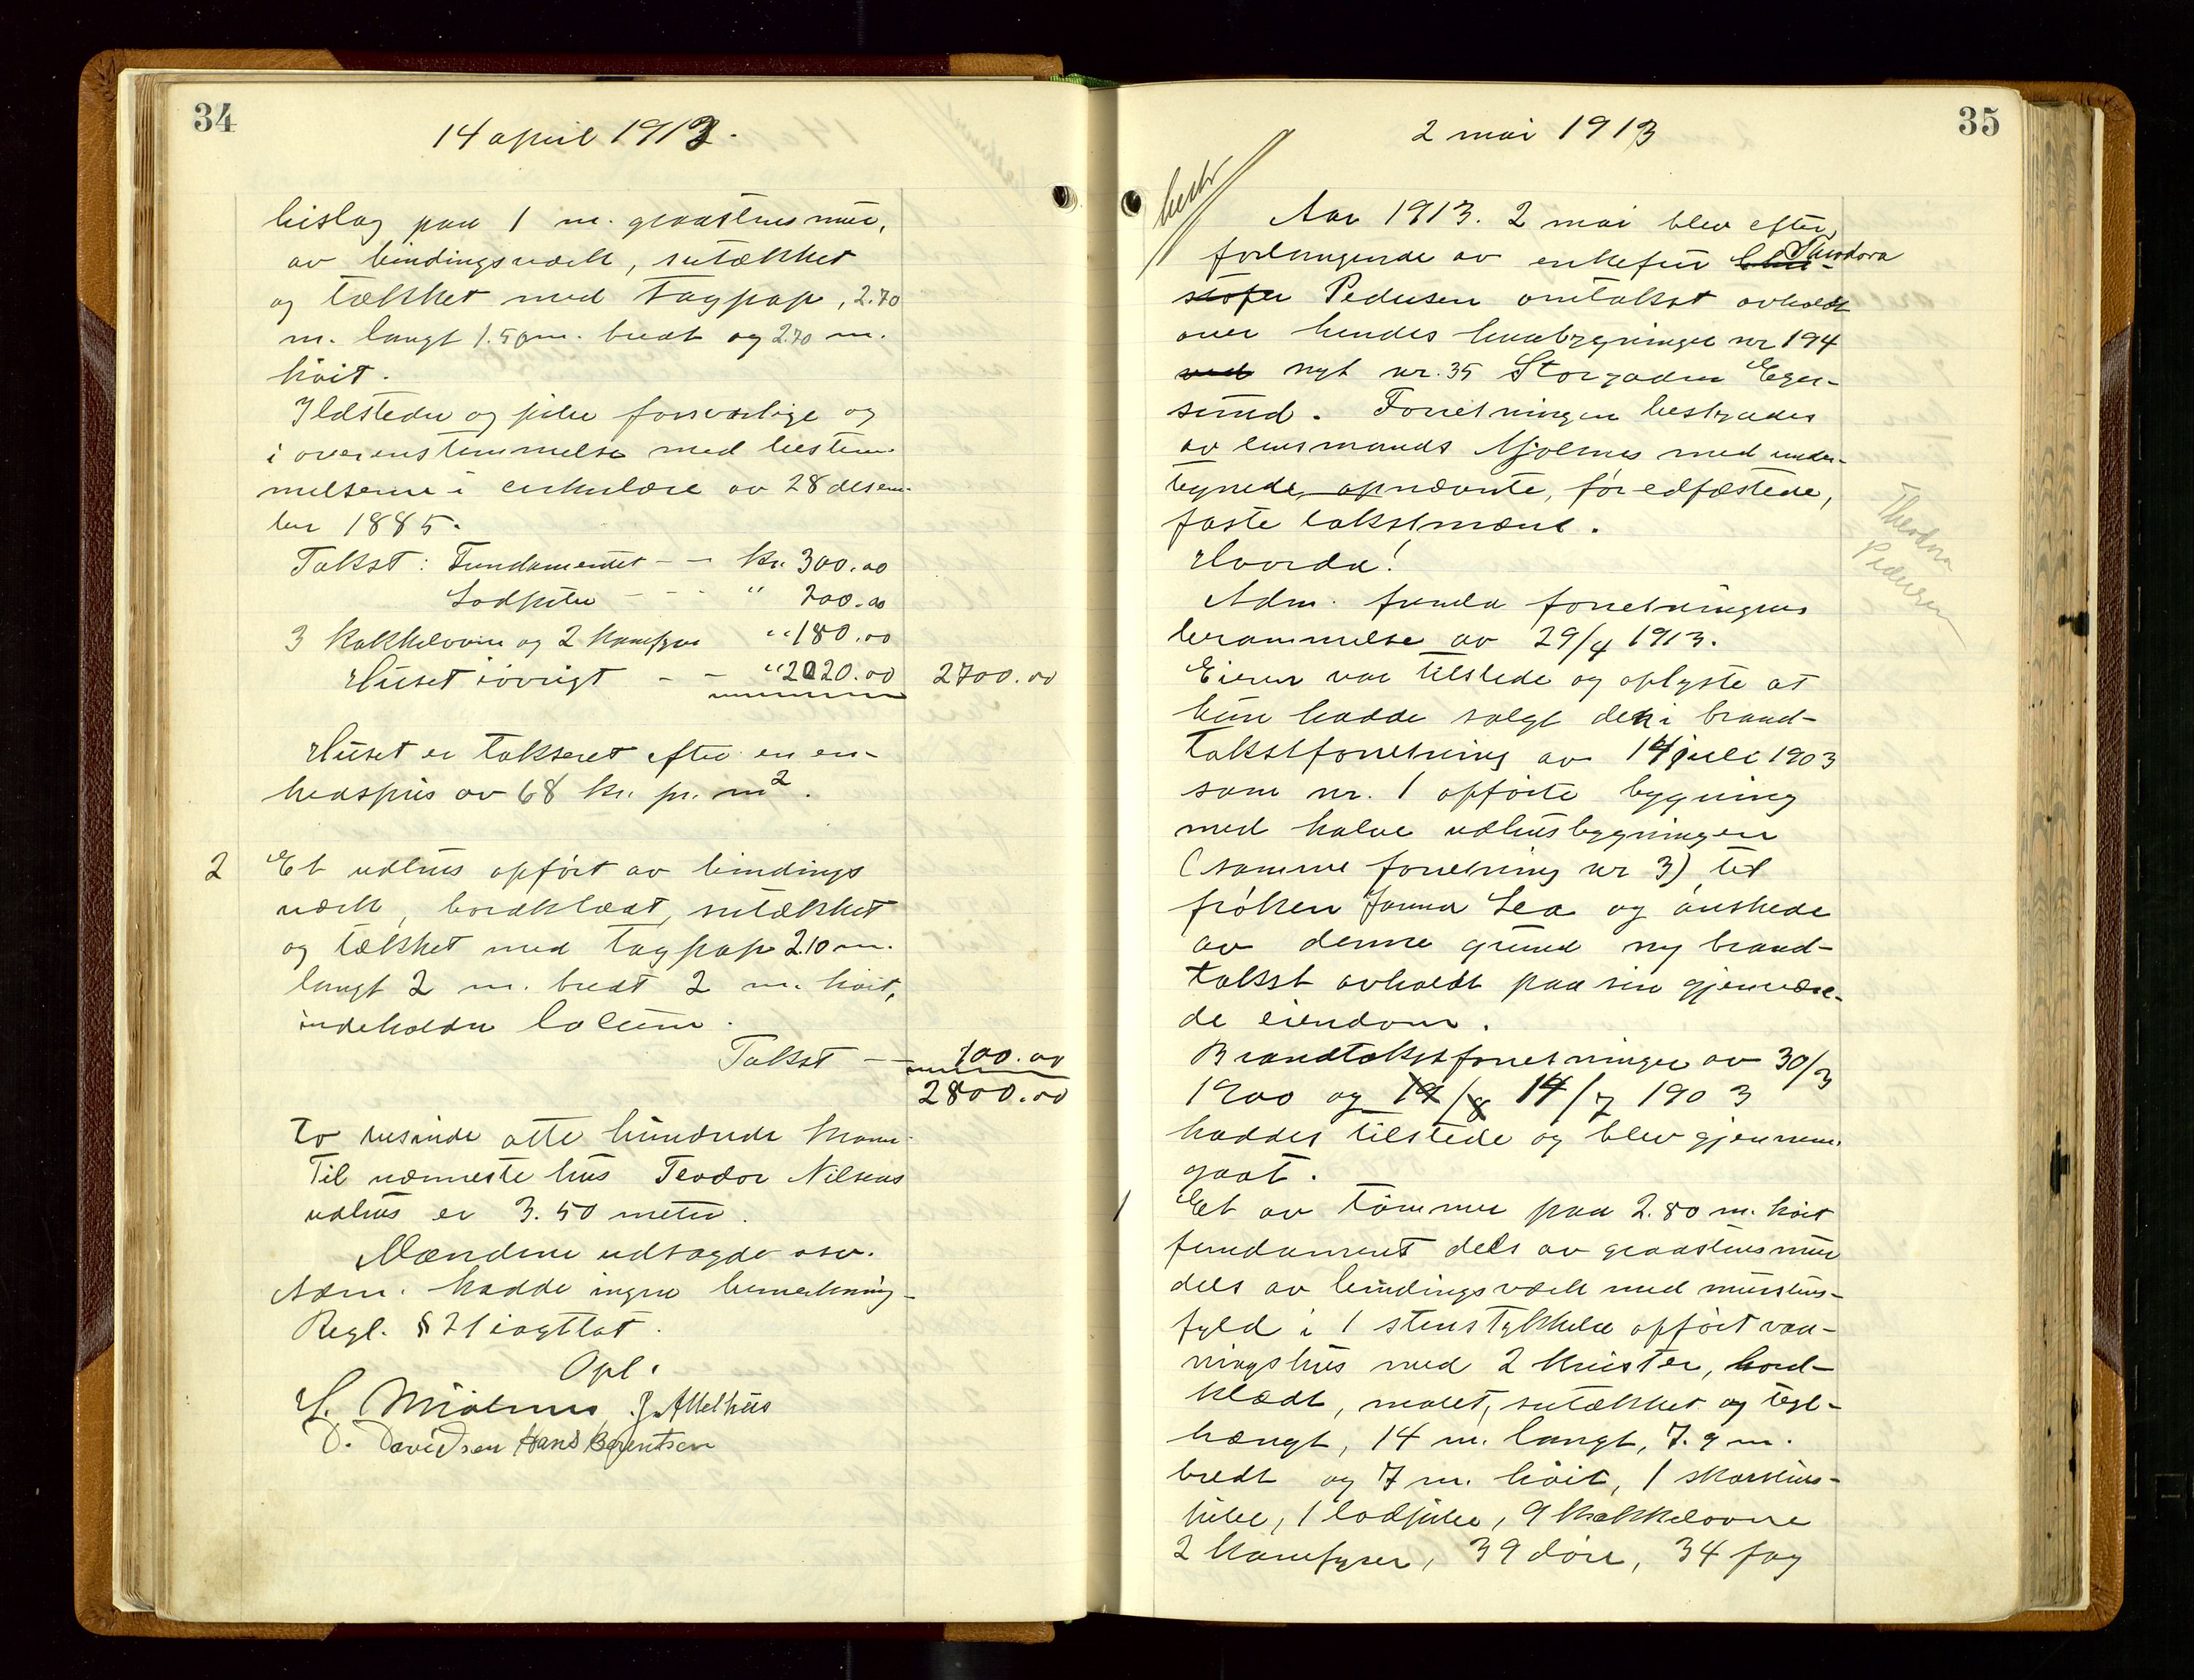 34
14 april 1913.
bislag paa 1 m. graastensmur,
av bindingsverk, sutækket
og tækket med tagpap, 2.70
m. langt 1.50 m. bredt og 2.70 m.
höit.
Ildsteder og piber forsvarlige og
i overensstemmelse med bestem-
melserne i cirkulære av 28 desem-
ber 1885.
Takst: Fundamentet - - kr. 300.00
Lodpiber - - - " 200.00
3 kakkelovne og 2 komfyrer " 180.00
Huset iövrigt - - " 2020.00 2700.00
Huset er takseret efter en en-
hedspris av 68 kr. pr. m2.
2 Et udhus opfört av bindings
værk, bordklædt, sutækket
og tækket med tagpap 2.10 m.
langt 2 m. bredt 2 m. höit,
indeholder locum.
Takst - - 100.00
2800.00
to tusinde otte hundrede kroner
Til nærmeste hus Teodor Nilsens
udhus er 3.50 meter.
Mændene udsagde osv.
Adm. hadde ingen bemerkning-
Regl. § 21 iagttat.
Opl.
S. Mjølnes, J. Attelhüs
D. Davidsen Hans Berentsen
35
2 mai 1913
Aar 1913. 2 mai blev efter
forlangende av enkefru Theodora
Pedersen omtakst avholdt
over hendes husbygninger nr 194
ved nyt nr. 35 Storgaden Eger-
sund. Forretningen bestyredes
av lensmand Mjølnes med under-
tegnede opnævnte, för edfæstede,
faste takstmænd.
Hvorda!
Theodora
Pedersen
Adm. fremla forretningens
berammelse av 29/4 1913.
Eieren var tilstede og oplyste at
hun hadde solgt den i brand-
takstforretning av 14 juli 1903
som nr. 1 opförte bygning
med halve udhusbygningen
(samme forretning nr 3) til
fröken Janna Lea og önskede
av denne grund ny brand-
takst avholdt paa sin gjenværen-
de eiendom.
Brandtakstforretninger av 30/3
1900 og 14/8 14/7 1903
haddes tilstede og blev gjennem-
gaat.
1 Et av tömmer paa 2.80 m. höit
fundament dels av graastensmur
dels av bindingsværk med murstens-
fyld i 1 stens tykkelse opfört vaa-
ningshus med 2 kvister, bord-
klædt, malet, sutækket og tegl-
hængt, 14 m. langt, 7.9 m.
bredt og 7 m. höit, 1 skorstens-
pibe, 1 lodpibe, 9 kakkelovne
2 komfyrer, 39 döre, 34 fag